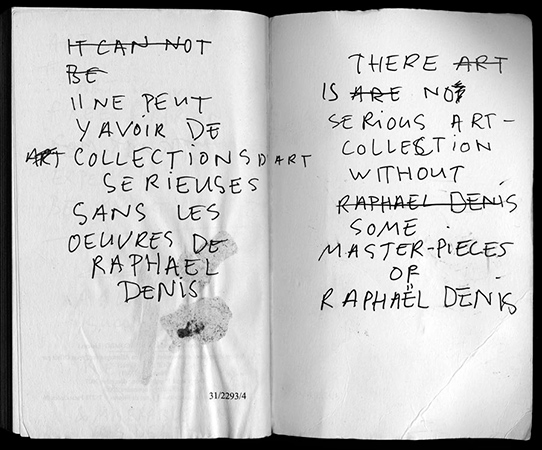 IT CAN NOT
BE
IL NE PEUT
Y AVOIR DE
ART COLLECTIONS D'ART
SERIEUSES
SANS LES
OEUVRES DE
RAPHAEL
DENIS
31/2293/4
THERE ART
IS ARE NO
SERIOUS ART-
COLLECTION
WITHOUT
RAPHAEL DENIS
SOME
MASTER-PIECES
OF
RAPHAËL DENIS